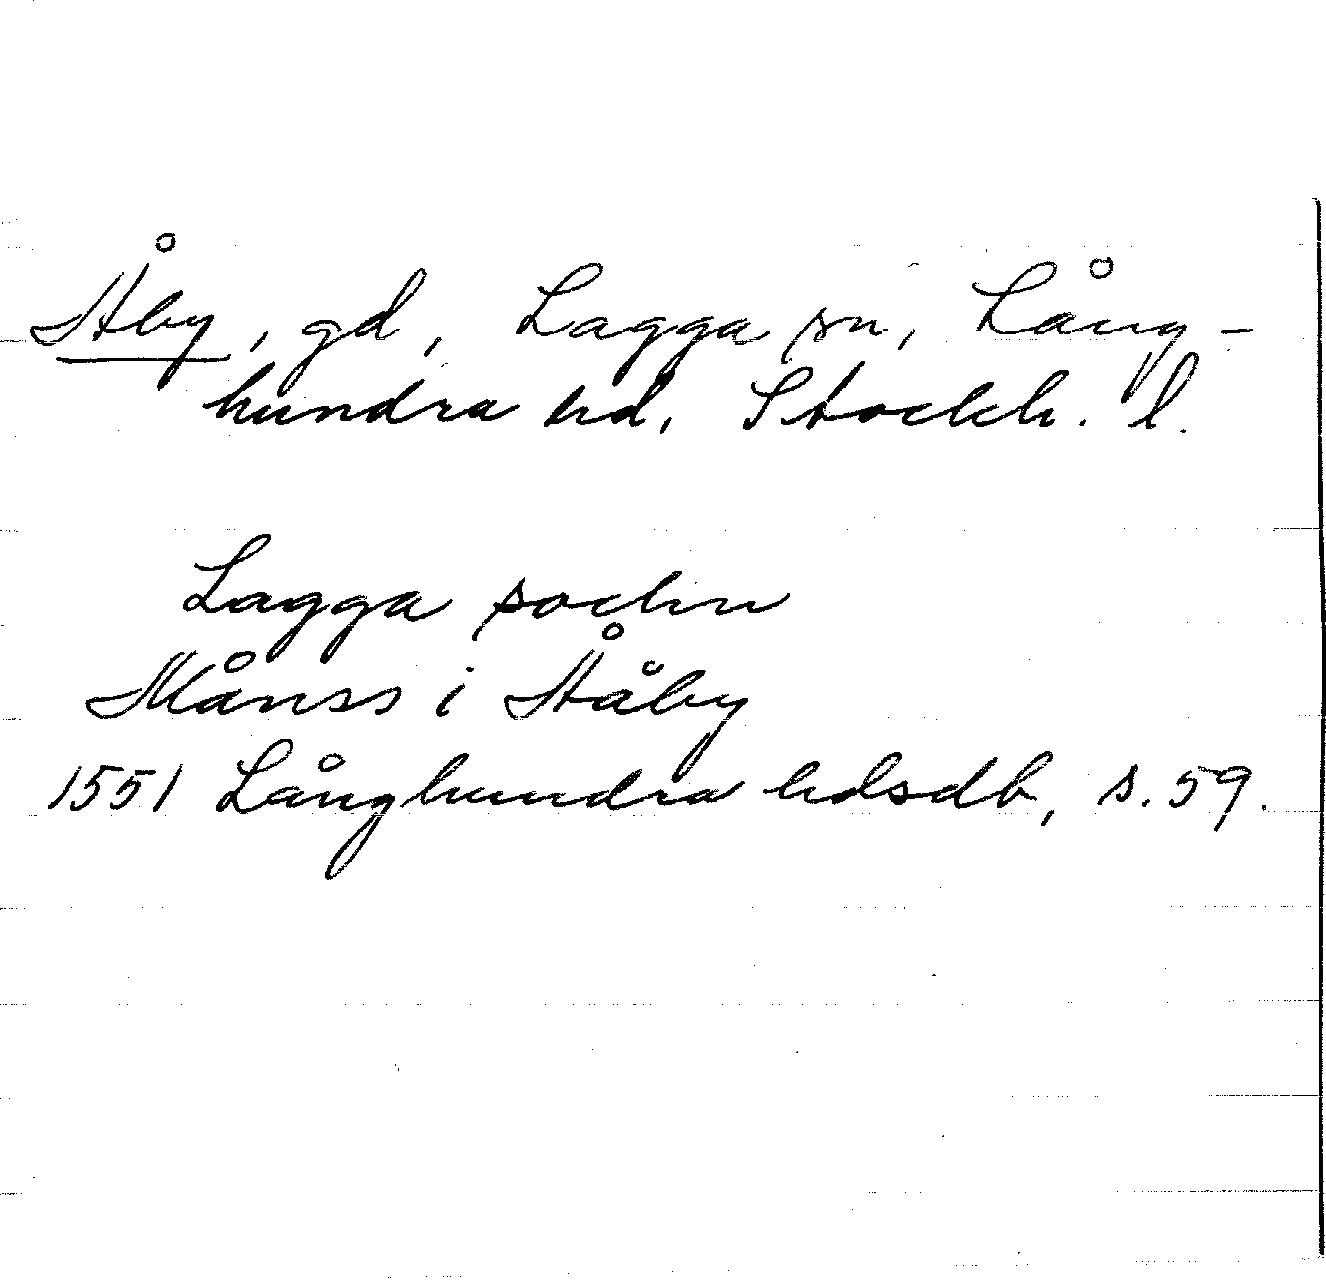 Åby, gd, Lagga sn, Lång-
hundra hd, Stockh. l.
Lagga sochn
Månss i Ååby
1551 Långhundra hdsdb, s. 59.